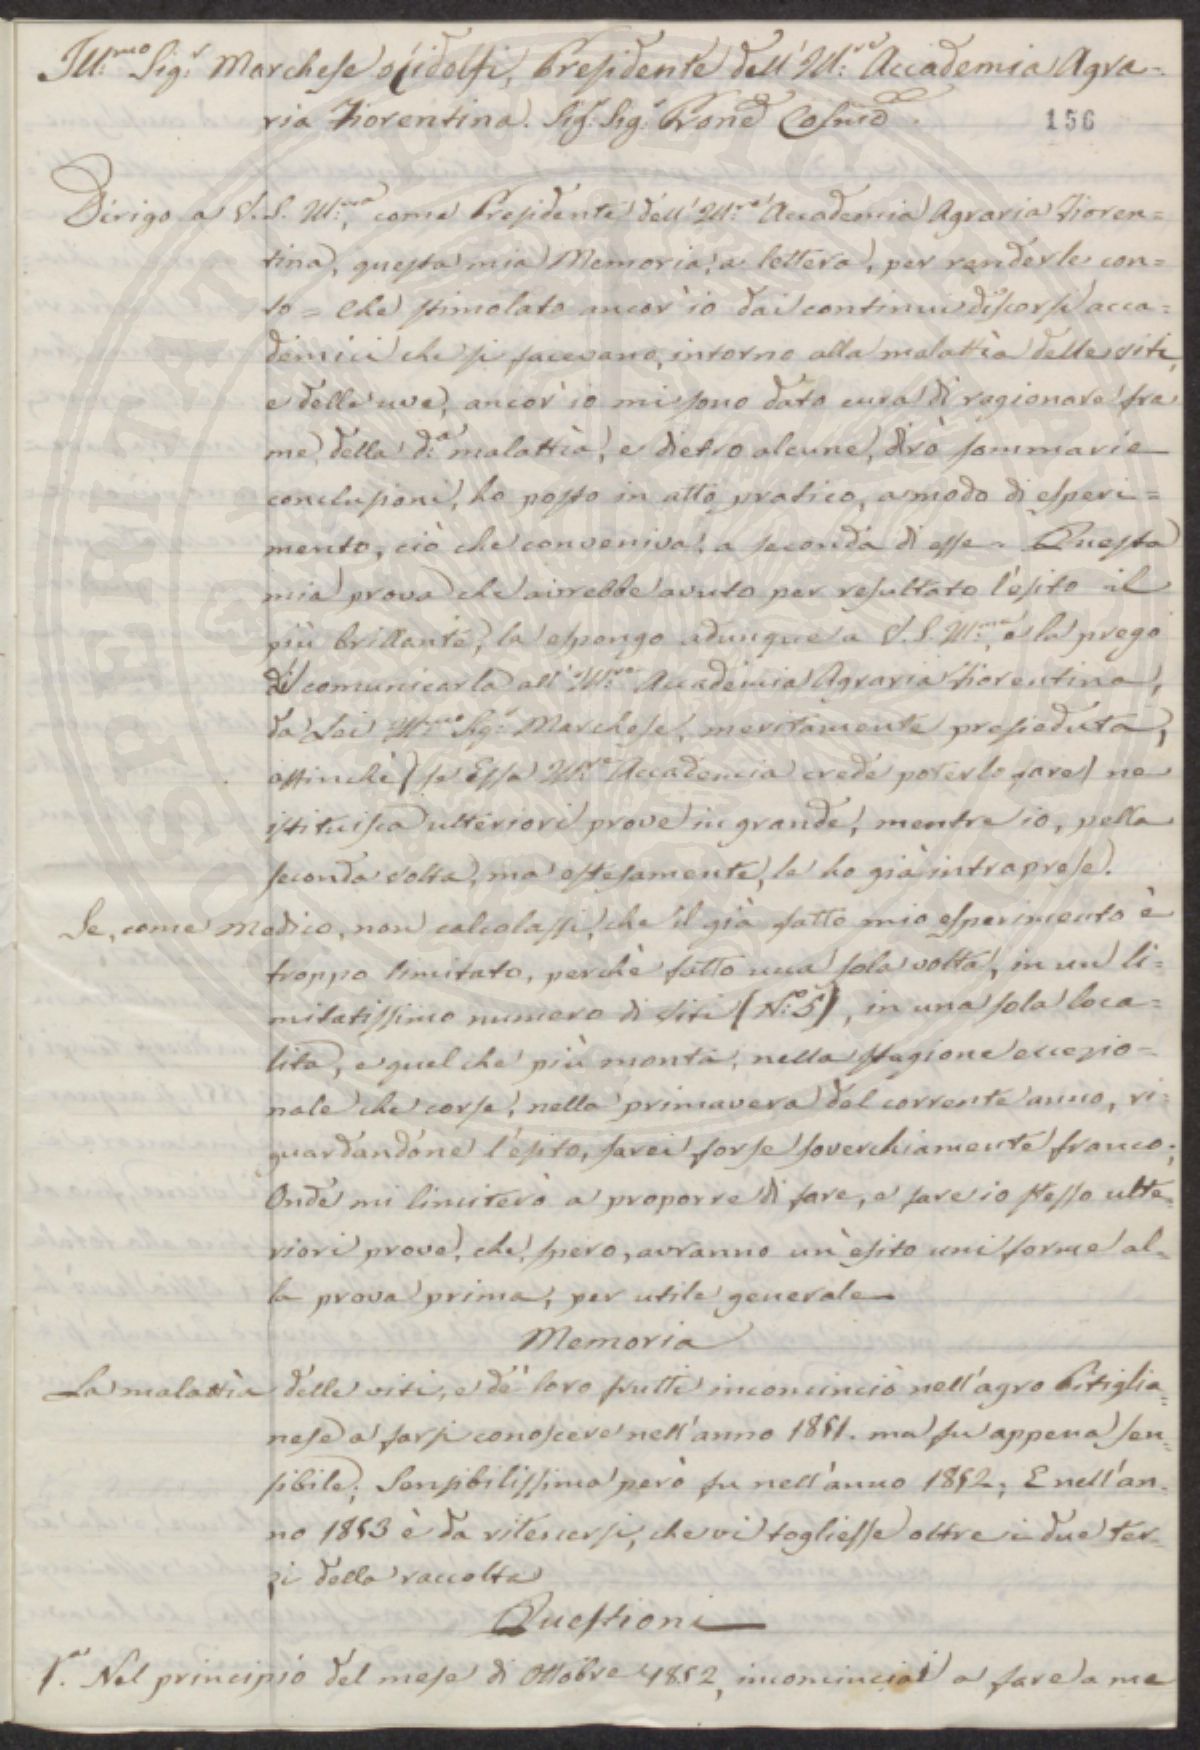 Ill:mo Sig:r Marchese Ridolfi, Presidente dell'Ill:re Accademia Agra-
ria Fiorentina. Sig: Sig: Prone Colmo
156
Dirigo a V.S. Ill:ma, come Presidente dell'Ill:re Accademia Agraria Fioren=
tina, questa mia Memoria, a lettera, per renderle con=
to = Che stimolato ancor'io dai continui discorsi acca=
demici che si facevano, intorno alla malattia delle viti,
e delle uve, ancor'io mi sono dato cura di ragionare fra
me, della d:a malattia, e dietro alcune, dirò sommarie
conclusioni, ho posto in atto pratico, a modo di esperi=
mento, ciò che conveniva, a seconda di esse. Questa
mia prova che avrebbe avuto per resultato l'esito il
più brillante, la espongo adunque a V.S. Ill:ma, e la prego
di comunicarla all'Ill:re Accademia Agraria Fiorentina,
da Lei Ill:mo Sig:r Marchese, meritamente presieduta,
affinchè (se Essa Ill:re Accademia crede poterlo fare) ne
istituisca ulteriori prove in grande, mentre io, pella
seconda volta, ma estesamente, le ho già intraprese.
Se, come Medico, non calcolassi, che il già fatto mio esperimento è
troppo limitato, perchè fatto una sola volta, in un li=
mitatissimo numero di viti (N:o 5), in una sola loca=
lità, e quel che più monta, nella stagione eccezio=
nale che corse, nella primavera del corrente anno, ri=
guardandone l'esito, sarei forse soverchiamente franco;
Onde mi limiterò a proporre di fare, e fare io stesso ulte=
riori prove, che, spero, avranno un'esito uniforme al=
la prova prima, per utile generale
Memoria
La malattia delle viti, e de' loro frutti incominciò nell'agro Pitiglia=
nese a farsi conoscere nell'anno 1851. ma fu appena sen=
sibile; Sensibilissima però fu nell'anno 1852; E nell'an=
no 1853 è da ritenersi, che vi togliesse oltre i due ter=
zi della raccolta
Questioni
1.a Nel principio del mese di Ottobre 1852, incominciai a fare a me